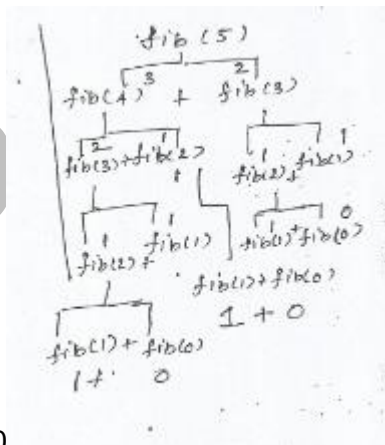 fib(5)
3 2
fib(4) + fib(3)
2 1 1 1
fib(3)+fib(2) fib(2)+fib(1)
1 1 1 0
fib(2)+ fib(1) fib(1)+fib(0)
fib(1)+fib(0)
1 + 0
fib(1)+ fib(0)
1+ 0
0